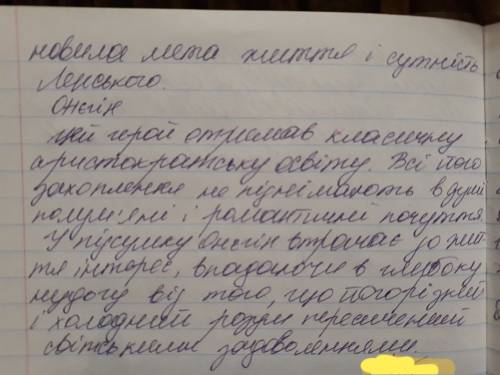 новила мета життя і сутність
Ленського.
Онєгін
цей герой отримав класичну
аристократську освіту. Всі його
захоплення не піднімають в душі
полум'яні і романтичні почуття.
У підсумку Онєгін втрачає до жит-
тя інтерес, впадаючи в глибоку
нудогу від того, що його різкий
і холодний розум пересичений
світськими задоволеннями.